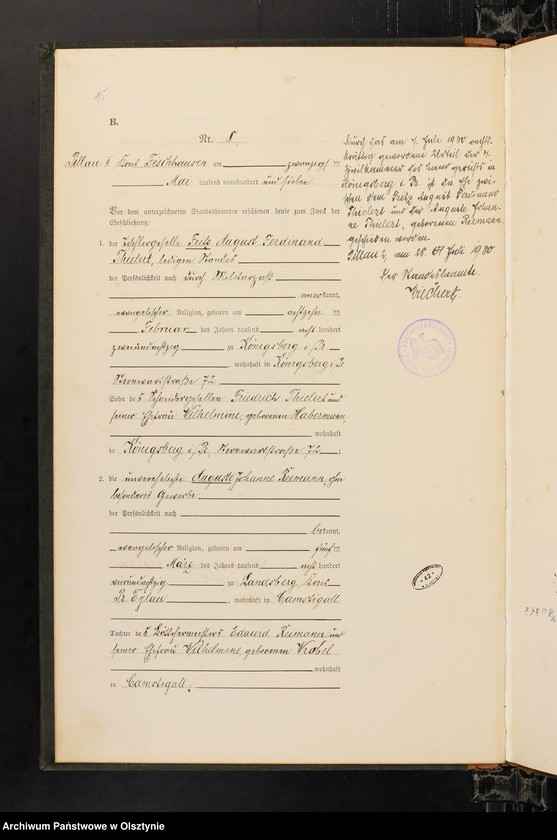 B.
Nr. 8.
Pillau II Kreis Fischhausen am zwanzigsten
Mai tausend neunhundert und sieben.
Vor dem unterzeichneten Standesbeamten erschienen heute zum Zweck der
Eheschließung:
1. der Tischlergeselle Fritz August Ferdinand
Thielert, ledigen Standes
der Persönlichkeit nach durch Militärpaß
anerkannt,
evangelischer Religion, geboren am achtzehnten
Februar des Jahres tausend acht hundert
zweiundachtzig zu Königsberg i/Pr
wohnhaft in Königsberg i/Pr
Sternwartstraße 72
Sohn des Friedrich Thielert und
seiner Ehefrau Wilhelmine, geborenen Habermann,
wohnhaft
in Königsberg i/Pr, Sternwartstraße 72;
2. die unverehelichte Auguste Johanne Reimann, ohne
besonderes Gewerbe
der Persönlichkeit nach
bekannt,
evangelischer Religion, geboren am fünften
März des Jahres tausend acht hundert
vierundachtzig zu Landsberg Kreis
Pr. Eylau, wohnhaft in Camstigall
Tochter des Böttchermeisters Eduard Reimann und
seiner Ehefrau Wilhelmine, geborenen Wrobel
wohnhaft
in Camstigall;
Durch das am 4. Juli 1930 rechts-
kräftig gewordene Urteil der 4.
Zivilkammer des Landgerichts in
Königsberg i. Pr. ist die Ehe zwi-
schen dem Fritz August Ferdinand
Thielert und der Auguste Johan-
ne Thielert, geborenen Reimann,
geschieden worden.
Pillau 2, am 28. Juli 1930
Der Standesbeamte.
42
Archiwum Państwowe w Olsztynie